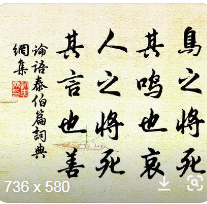 鳥之將死
其鸣也哀
人之將死
其言也善
論語泰伯篇詞典
網集
736 x 580